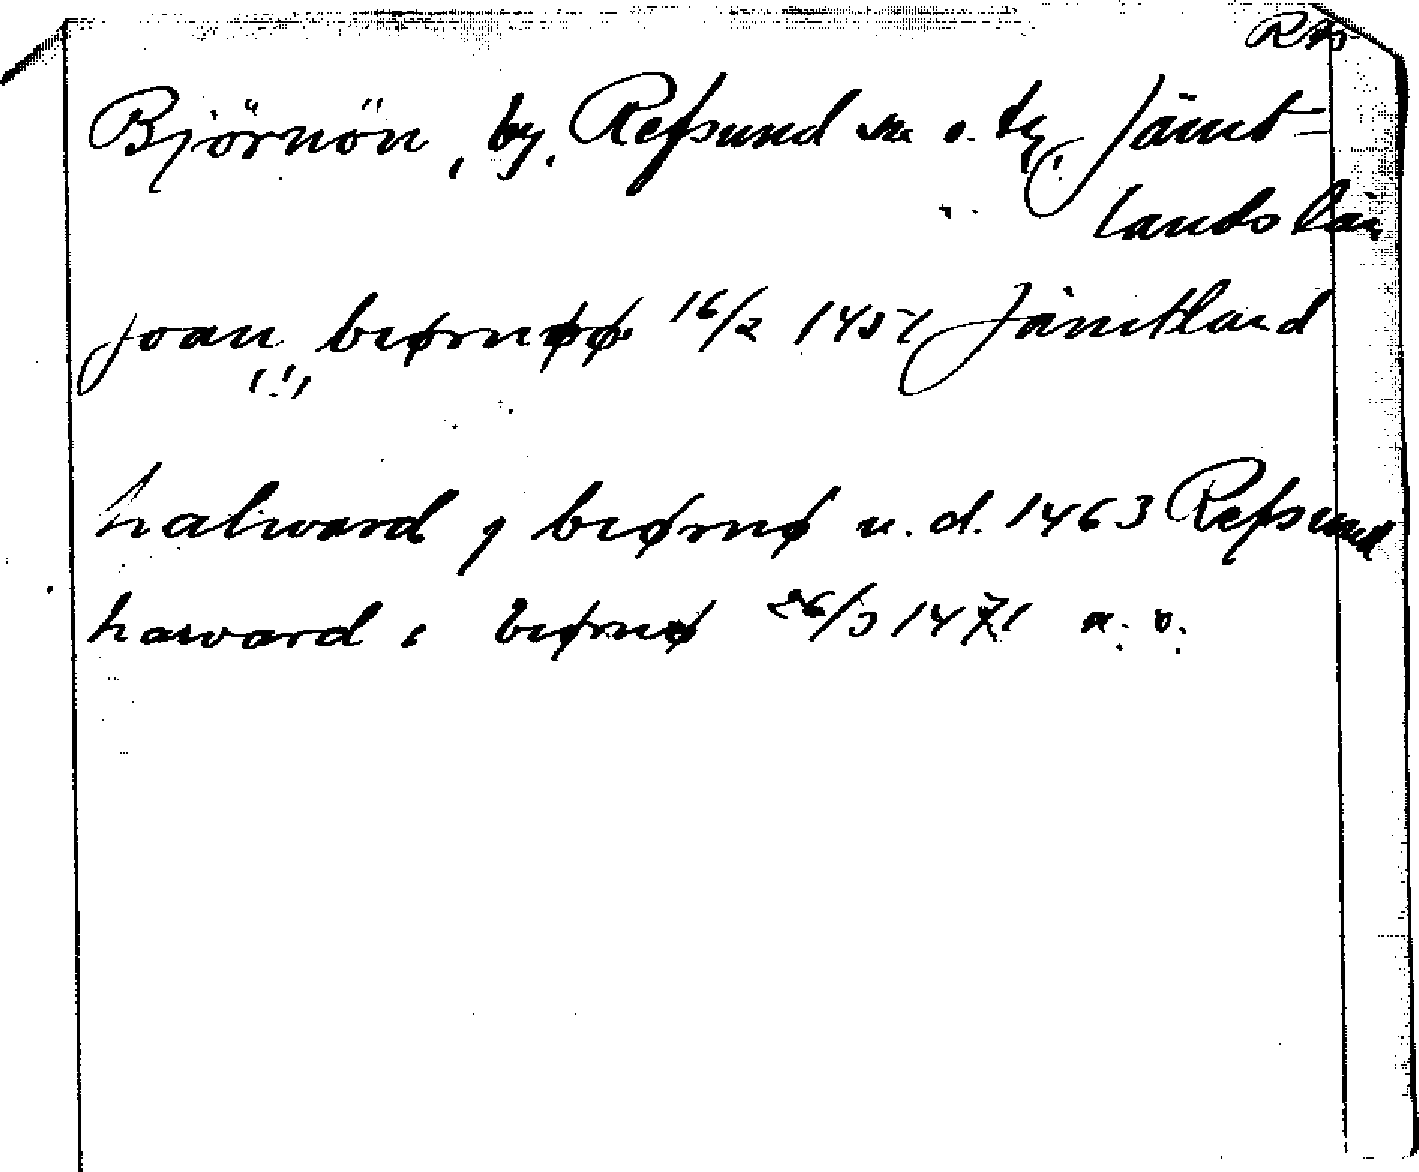 Björnön, by, Refsund sn o. tg, Jämt-
lands län
joan, biørnøø 16/2 1451 Jämtland
halward j biørnø u.d. 1463 Refsund
harvard i biørnø 26/3 1471 a. o.